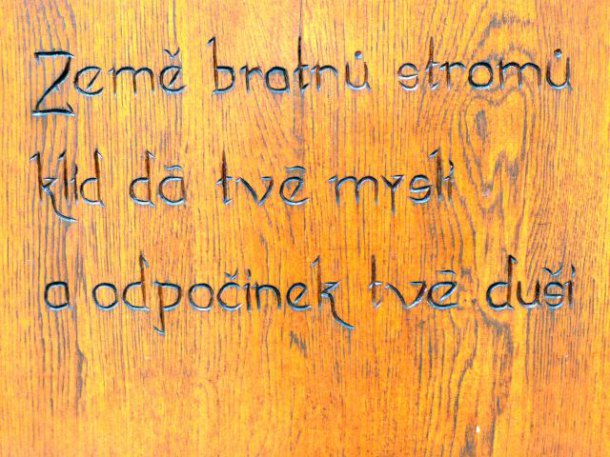 Země bratrů stromů
klid dá tvé mysli
a odpočinek tvé duši